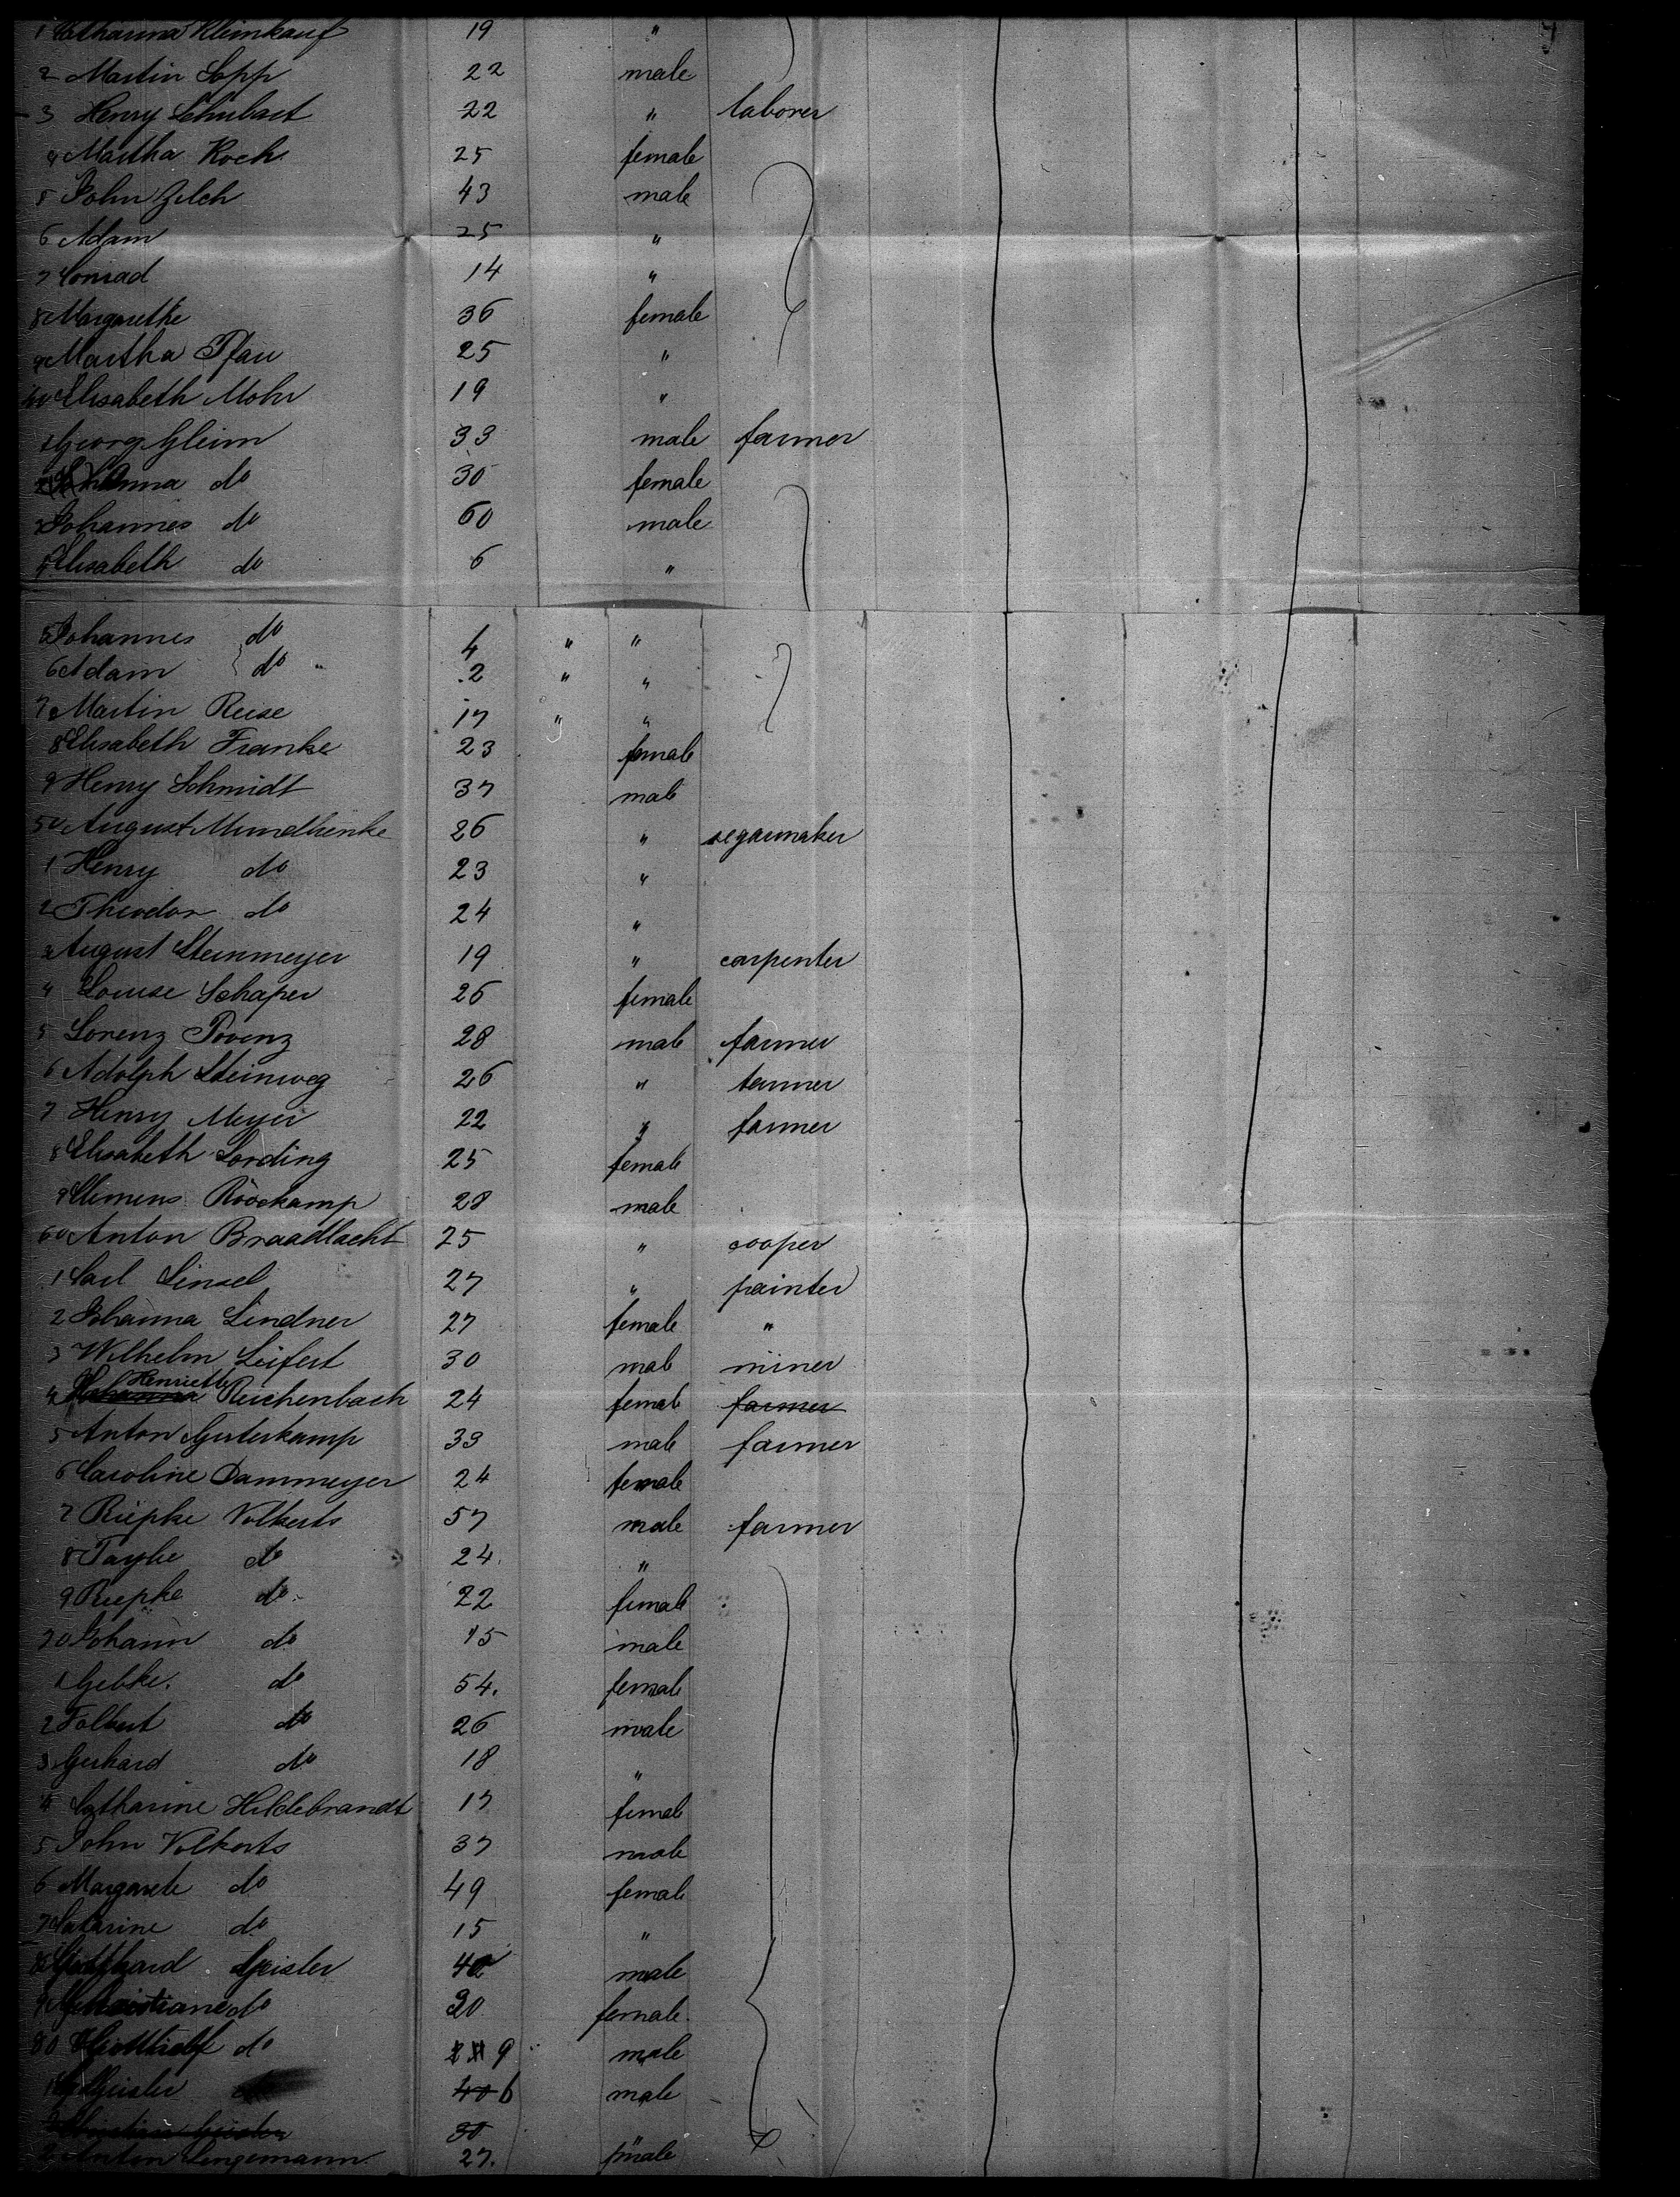 7
1 Catharina Kleinkauf 19 "
2 Martin Sopp 22 male
3 Henry Schubart 22 " laborer
4 Martha Koch 25 female
5 John Zilch 43 male
6 Adam 25 "
7 Conrad 14 "
8 Margarethe 36 female
9 Martha Pfau 25 "
40 Elisabeth Mohr 19 "
1 Georg Gleim 33 male farmer
2 Johanna do 30 female
3 Johannes do 60 male
4 Elisabeth do 6 "
5 Johannes do 4 " "
6 Adam do 2 " "
7 Martin Reese 17 " "
8 Elisabeth Franke 23 female
9 Henry Schmidt 37 male
50 August Mundhenke 26 " segarmaker
1 Henry do 23 "
2 Theodor do 24 "
3 August Steinmeyer 19 " carpenter
4 Louise Schaper 26 female
5 Lorenz Povenz 28 male farmer
6 Adolph Steinweg 26 " tanner
7 Henry Meyer 22 " farmer
8 Elisabeth Lording 25 female
9 Clemens Röockamp 28 male
60 Anton Braadlacht 25 " cooper
1 Carl Linsel 27 " painter
2 Johanna Lindner 27 female "
3 Wilhelm Leifert 30 male miner
Henriette
4 Johanna Reichenbach 24 female farmer
5 Anton Gerterkamp 33 male farmer
6 Caroline Dammeyer 24 female
7 Riepke Volkerts 57 male farmer
8 Taybe do 24 "
9 Riepke do 22 female
70 Johann do 15 male
1 Gebke do 54 female
2 Folkert do 26 male
3 Gerhard do 18 "
4 Catharine Hildebrandt 17 female
5 John Volkerts 37 male
6 Margarete do 49 female
7 Catarine do 15 "
8 Gotthard Geisler 40 male
9 Christiane do 30 female
80 Gotthold do 9 male
1 Geisler 40 6 male
2 Christian Geisler 30
2 Anton Lingemann 27 male